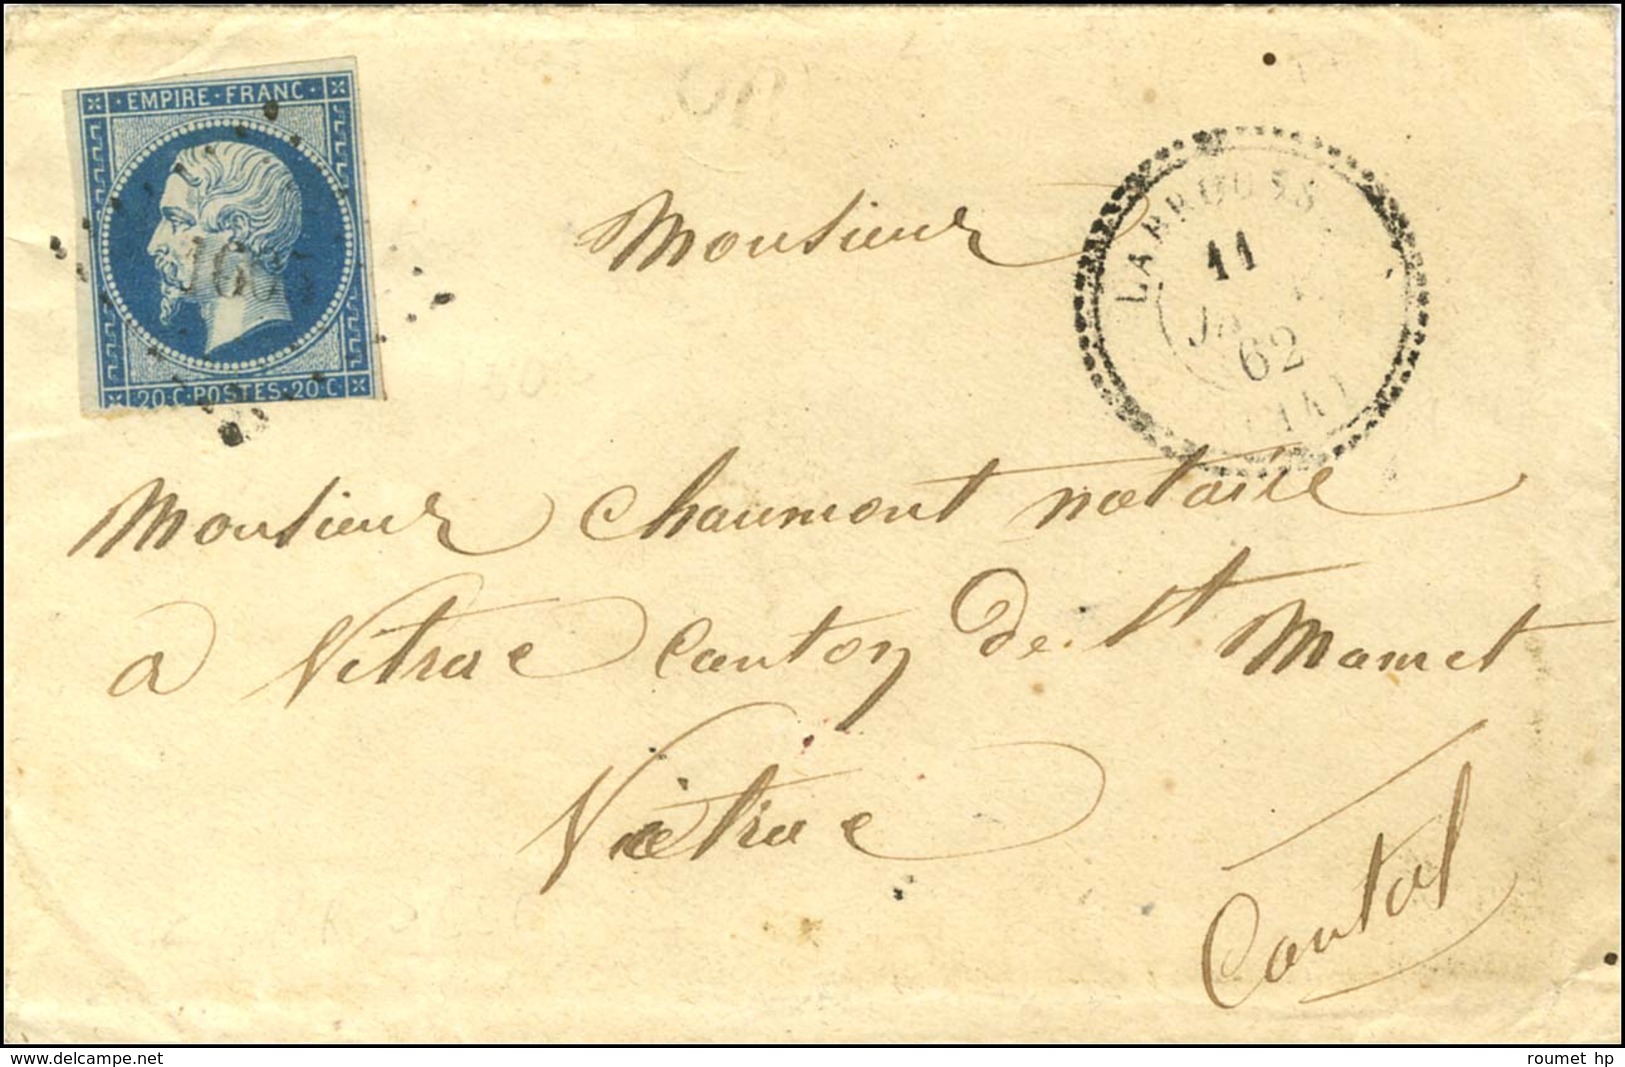 EMPIRE · FRANC
20 · C · POSTES · 20 · C
OR
LABROUSS
11
62
Monsieur
Monsieur Chaumont notaire
a Vitrac Canton de St Mamet
Vitrac
Cantal
www.delcampe.net
roumet hp